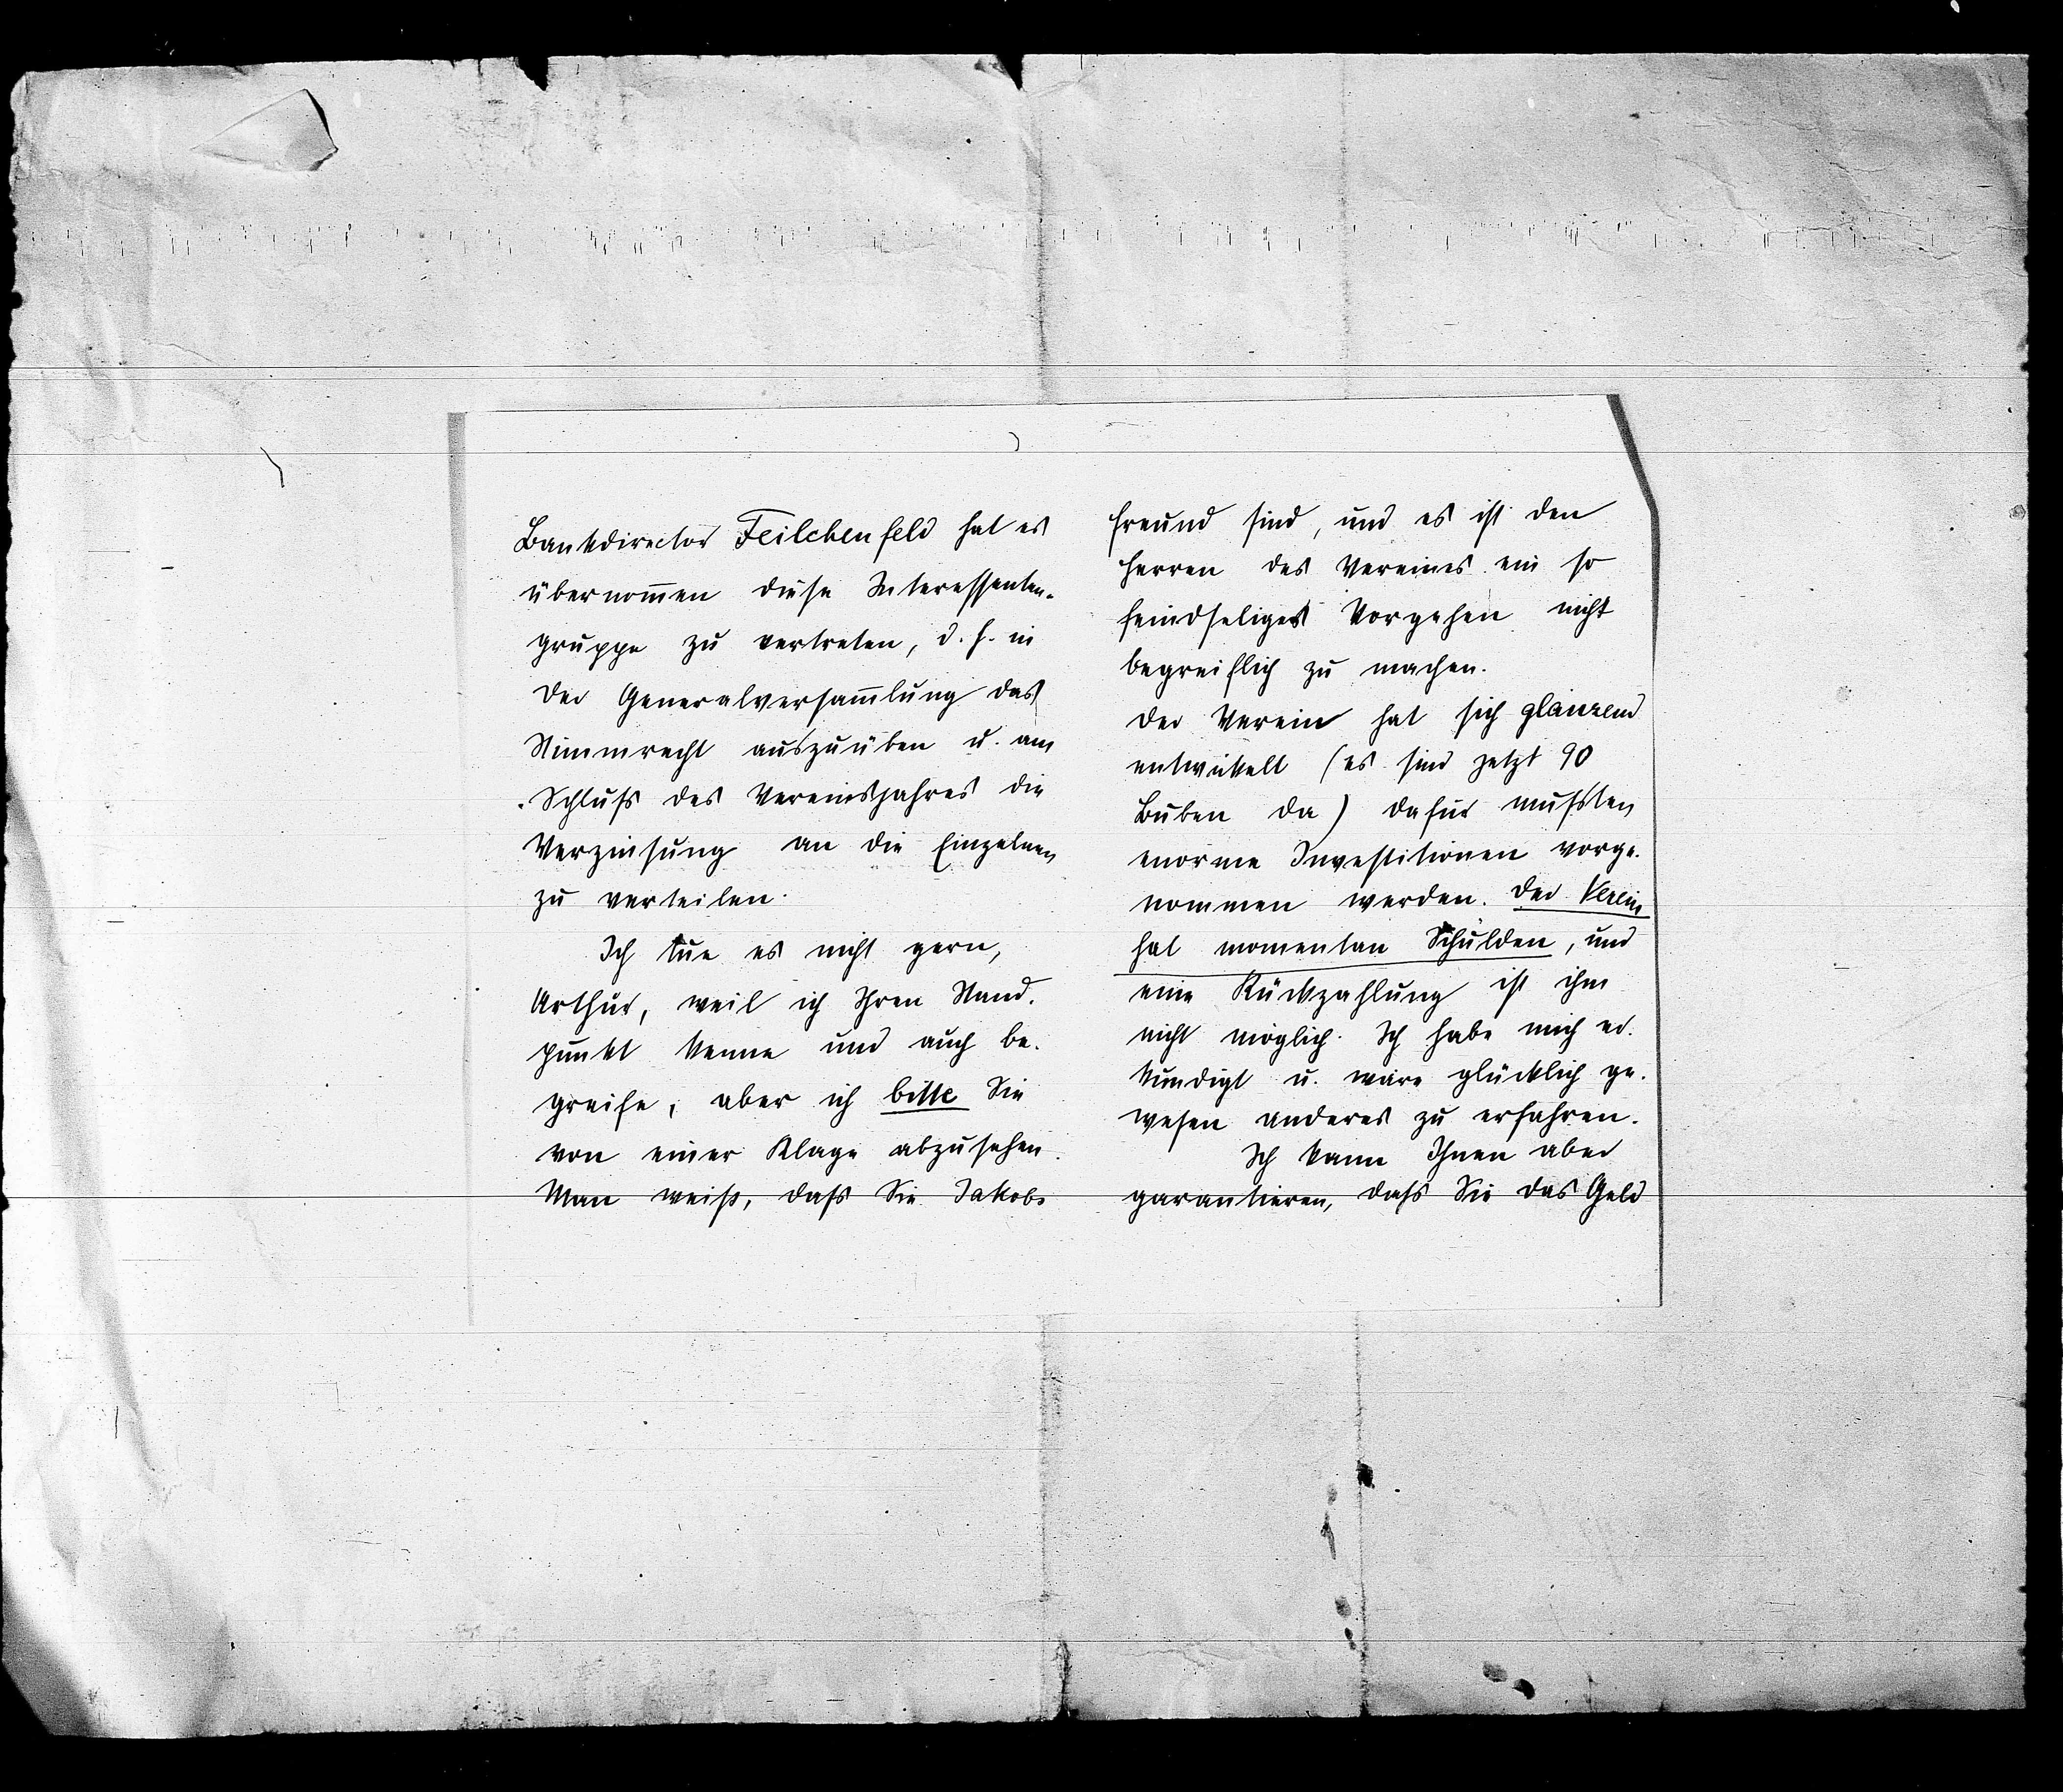 Bankdirector Feilchenfeld hat es
übernom̄en diese Interessenten-
gruppe zu vertreten, d. h. in
der Generalversam̄lung das
Stimmrecht auszuüben u. am
Schluss des Vereinsjahres die
Verzinsung an die Einzelnen
zu verteilen.
Ich tue es nicht gern,
Arthur, weil ich Ihren Stand-
punkt kenne und auch be-
greife, aber ich bitte Sie
von einer Klage abzusehen.
Man weiß, dass Sie Jakobs
Freund sind, und es ist den
Herren des Vereines ein so
feindseliges Vorgehen nicht
begreiflich zu machen.
Der Verein hat sich glänzend
entwikelt (es sind jetzt 90
Buben da) dafür mussten
enorme Investitionen vorge-
nommen werden. Der Verein
hat momentan Schulden, und
eine Rückzahlung ist ihm
nicht möglich. Ich habe mich er-
kundigt u. wäre glücklich ge-
wesen anderes zu erfahren.
Ich kann Ihnen aber
garantieren, dass Sie das Geld